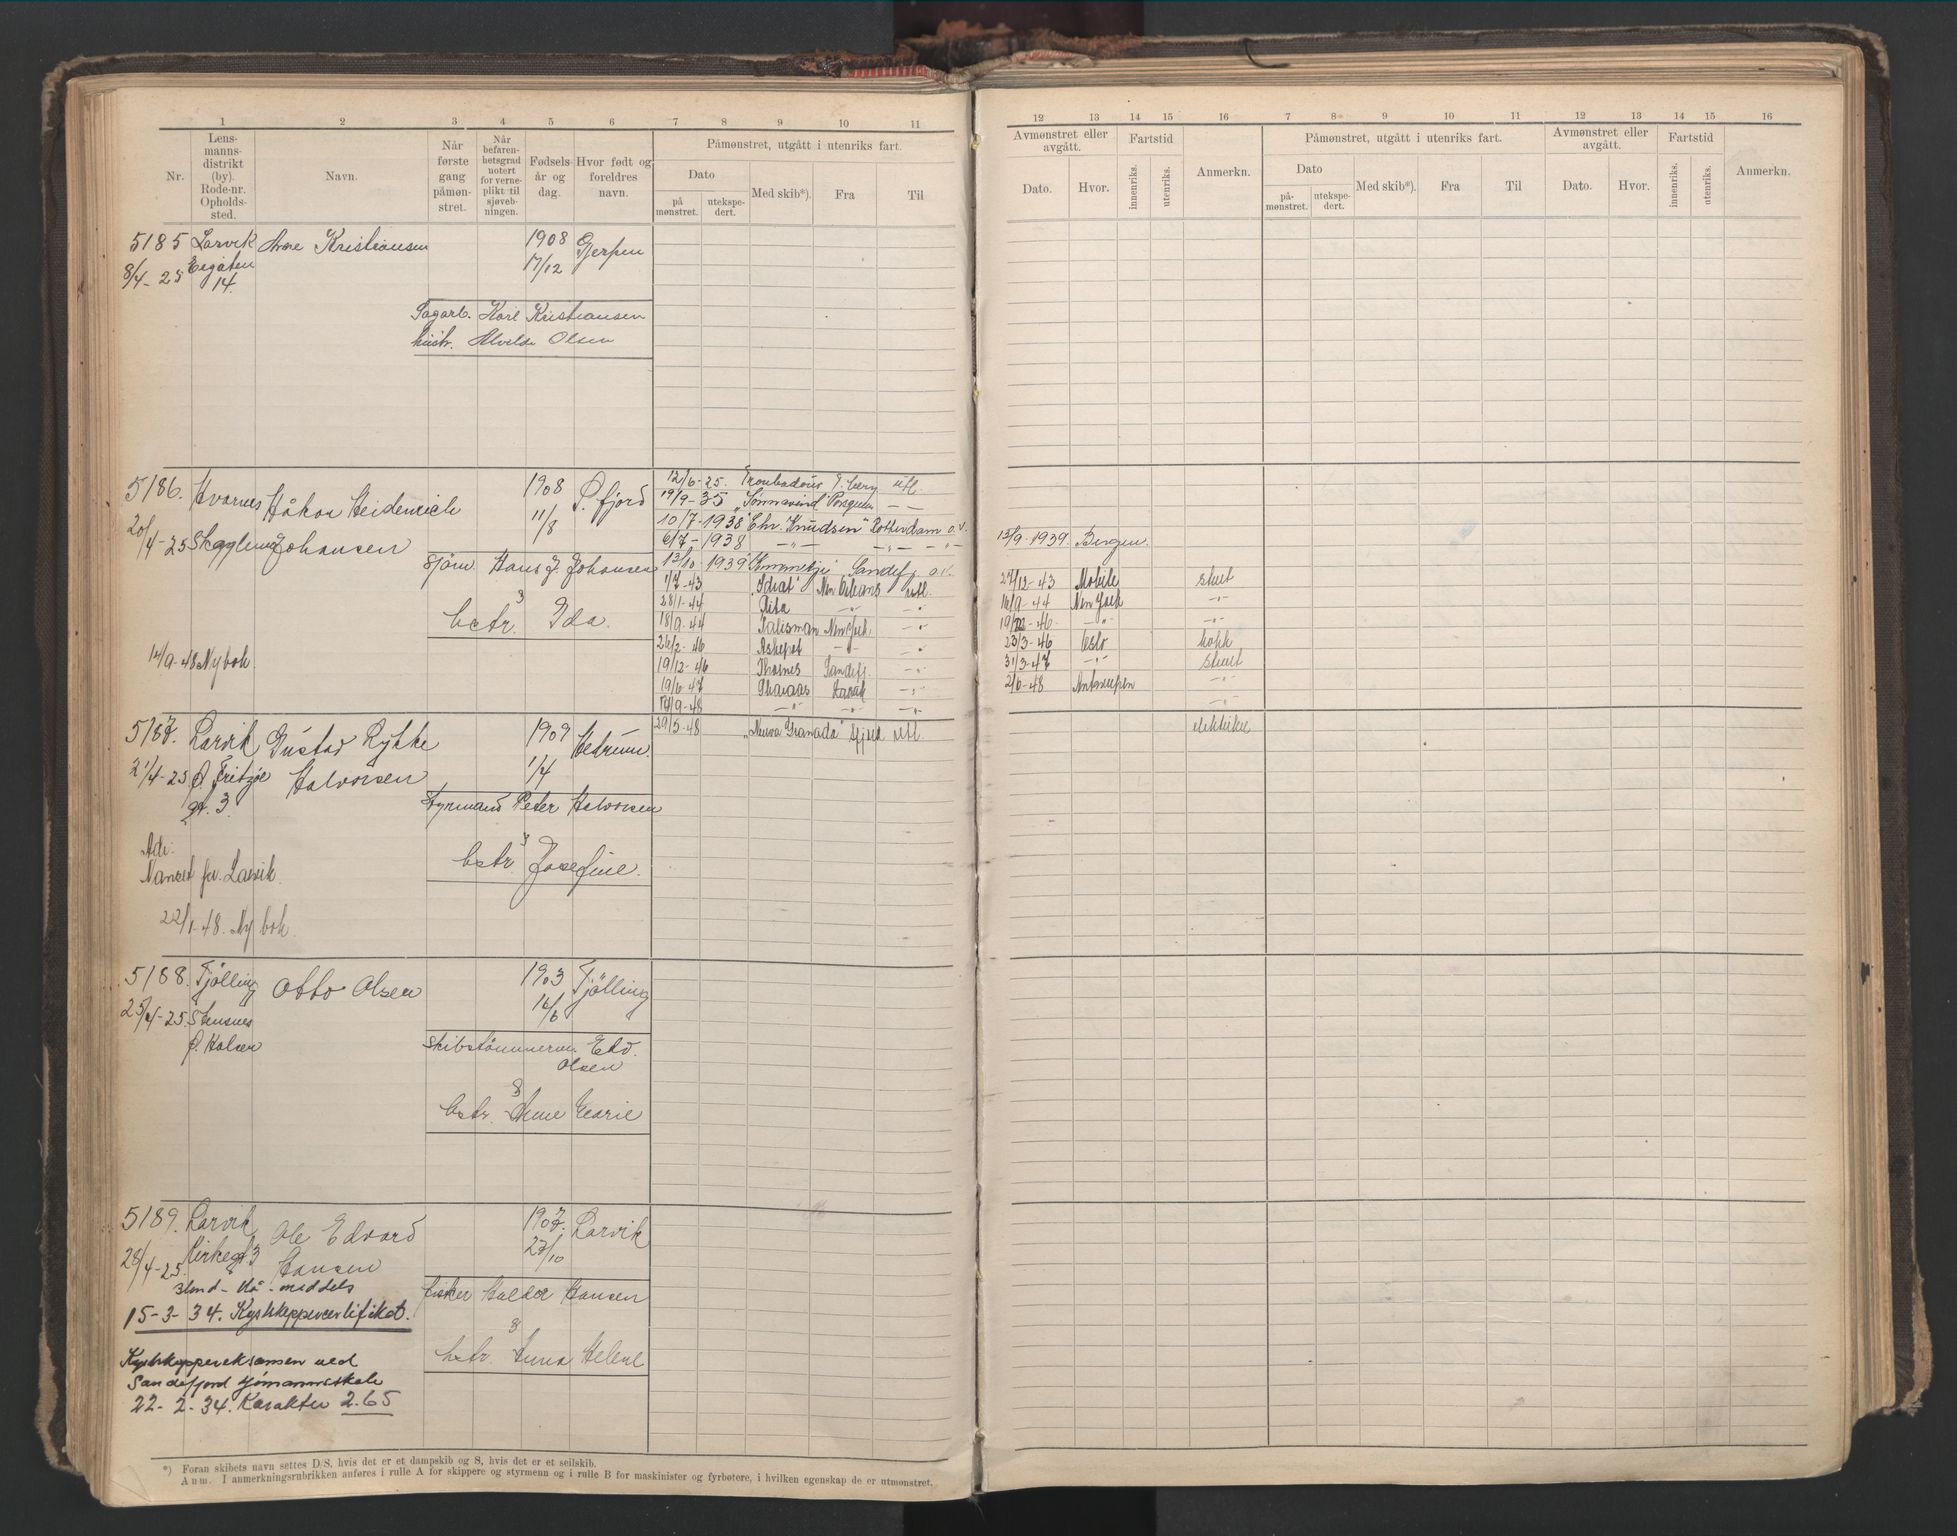 1 2 3 4 5 6 7 8 9 10 11
Nr.
Lens-
manns-
distrikt
(by).
Rode-nr.
Opholds-
sted.
Navn.
Når
første
gang
påmøn-
stret.
Når
befaren-
hetsgrad
notert
for verne-
plikt til
sjøveb-
ningen.
Fødsels-
år og
dag.
Hvor født og
foreldres
navn.
Påmønstret, utgått i utenriks fart.
Dato
på
mønstret.
utekspe-
dert.
Med skib*).
Fra
Til
12 13 14 15 16 7 8 9 10 11 12 13 14 15 16
Avmønstret eller
avgått.
Dato.
Hvor.
Fartstid
innenriks.
utenriks.
Anmerkn.
Påmønstret, utgått i utenriks fart.
Dato
på-
mønstret.
utekspe-
dert.
Med skib*).
Fra
Til
Avmønstret eller
avgått.
Dato.
Hvor.
Fartstid
innenriks.
utenriks.
Anmerkn.
5185 Larvik Arne Kristiansen 1908 Gjerpen
8/4-25 17/12
14.
Sagarb. Karl Kristiansen
hustr. Alvilde Olsen
5186. Kvarnes Håkon Heidenreich 1908 S.fjord
20/4-25 Johansen 11/8
sjøm. Hans J. Johansen
3
bstr. Ida.
14/9-48 Ny bok.
12/6-25. Troubadour utl.
19/9-35 „Sønnavind" Porsgrunn -"-
10/7-1938 "Chr. Knudsen" Rotterdam o.v.
6/7-1938 -"- -"- -"-
13/10-1939 Sandefj. o.v.
1/7-43 „Idræt" New Orleans utl.
28/1-44 Rita -"- -"-
18/9-44 Talisman New York -"-
26/2-46 Askepot -"- -"-
19/12-46 Thorsnes Sandefj. -"-
19/6-47 Larvik -"-
14/9-48 -"- -"- -"-
13/9-1939. Bergen.
27/12-43 Mobile stuert
16/9-44 New York -"-
-46 -"- -"-
23/3-46 Oslo kokk
31/3-47 -"- stuert
2/6-48 Antwerpen -"-
-"-
5187. Larvik Gustav Lykke 1909 Hedrum.
21/4-25 Ø. Fritzøe Halvorsen 1/4
gt. 3.
Styrmand Peter Halvorsen
3
bstr. Josefine.
Adr:
Nanset pr. Larvik.
22/1-48. Ny bok.
29/5-48 „Nueva Granada" Sfjord utl.
elektriker
5188. Tjølling Otto Olsen 1903 Tjølling
25/4-25. Stusnes 16/6
p. Halsen
skibstømmerm. Edv.
Olsen
8
bstr. Anne Marie
5189. Larvik Ole Edvard 1907. Larvik
28/4-25. Kirkegt 3 Hansen 23/10
Blond - blå - middels
fisker Haldor Hansen
15-3-34. Kystskippercertifikat.
8
bstr. Anna Helene
Kystskippereksamen ved
Sandefjord sjømannsskole
22-2-34. Karakter 2.65
*) Foran skibets navn settes D/S, hvis det er et dampskib og S, hvis det er et seilskib.
Anm. I anmerkningsrubrikken anføres i rulle A for skippere og styrmenn og i rulle B for maskinister og fyrbøtere, i hvilken egenskap de er utmønstret.